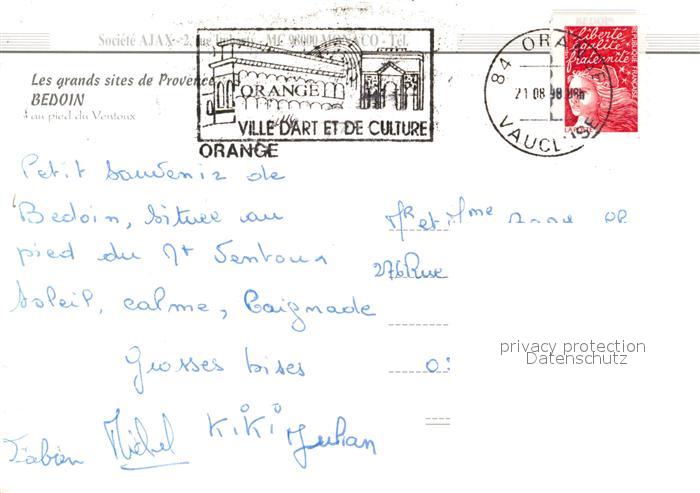 BEDOIN
Société AJAX - 2, rue MC 98000 MONACO - Tél.
Les grands sites de Provence
BEDOIN
au pied du Ventoux
ORANGE
VILLE D'ART ET DE CULTURE
ORANGE
84 ORANGE
21 08 98
VAUCLUSE
liberté
égalité
fraternité
RÉPUBLIQUE FRANÇAISE
LA POSTE
Petit souvenir de
Bedoin, située au
pied du Mt Ventoux
Soleil, calme, Baignade
Grosses bises
Fabien Michel KiKi Juhan
Mr et Mme
276 Rue
0
privacy protection
Datenschutz